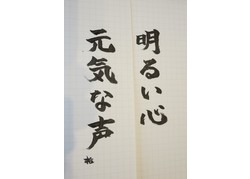 明るい心
元気な声